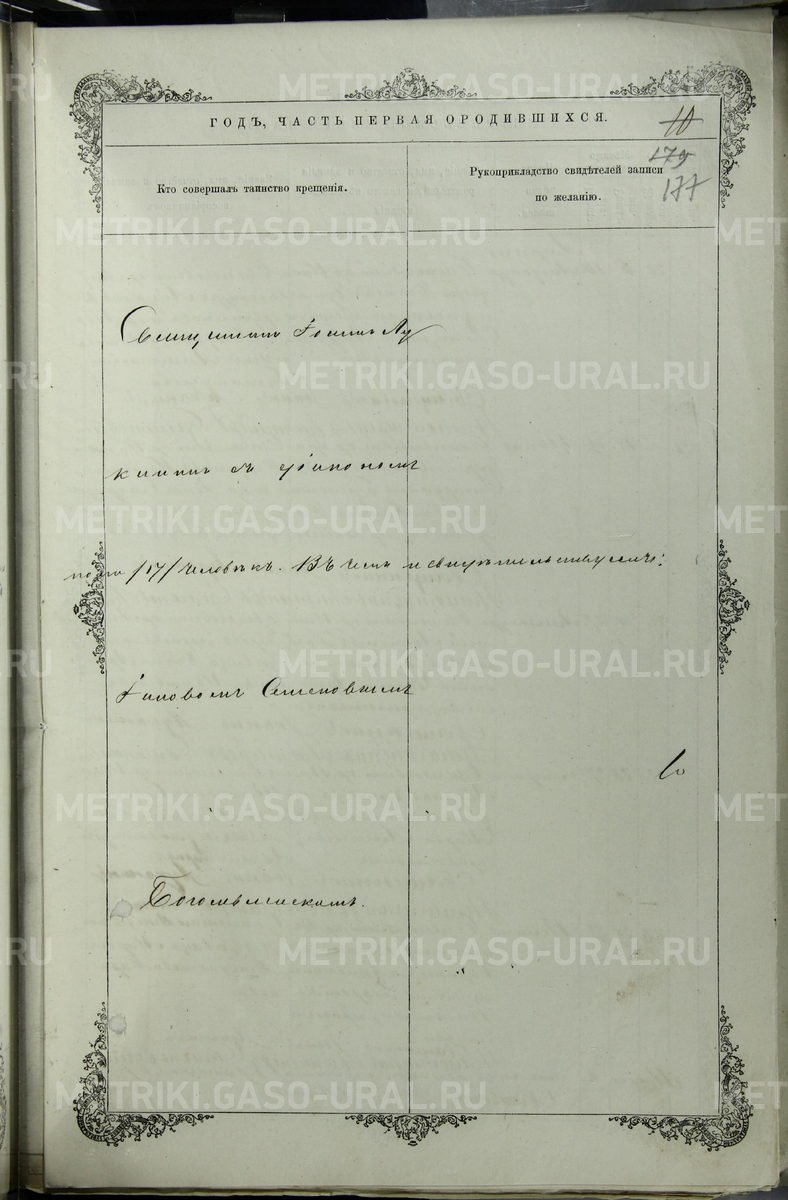 ГОДЪ, ЧАСТЬ ПЕРВАЯ ОРОДИВШИХСЯ.
10
179
177
Кто совершалъ таинство крещенія.
Рукоприкладство свидѣтелей записи
по желанію.
Священникъ Іоаннъ Лу
кинъ съ діакономъ
/17/ человѣкъ. Въ чемъ и свидѣтельствуемъ:
Іаковомъ
Богомъ
METRIKI.GASO-URAL.RU
METRIKI.GASO-URAL.RU
METRIKI.GASO-URAL.RU
METRIKI.GASO-URAL.RU
METRIKI.GASO-URAL.RU
METRIKI.GASO-URAL.RU
METRIKI.GASO-URAL.RU
METRIKI.GASO-URAL.RU